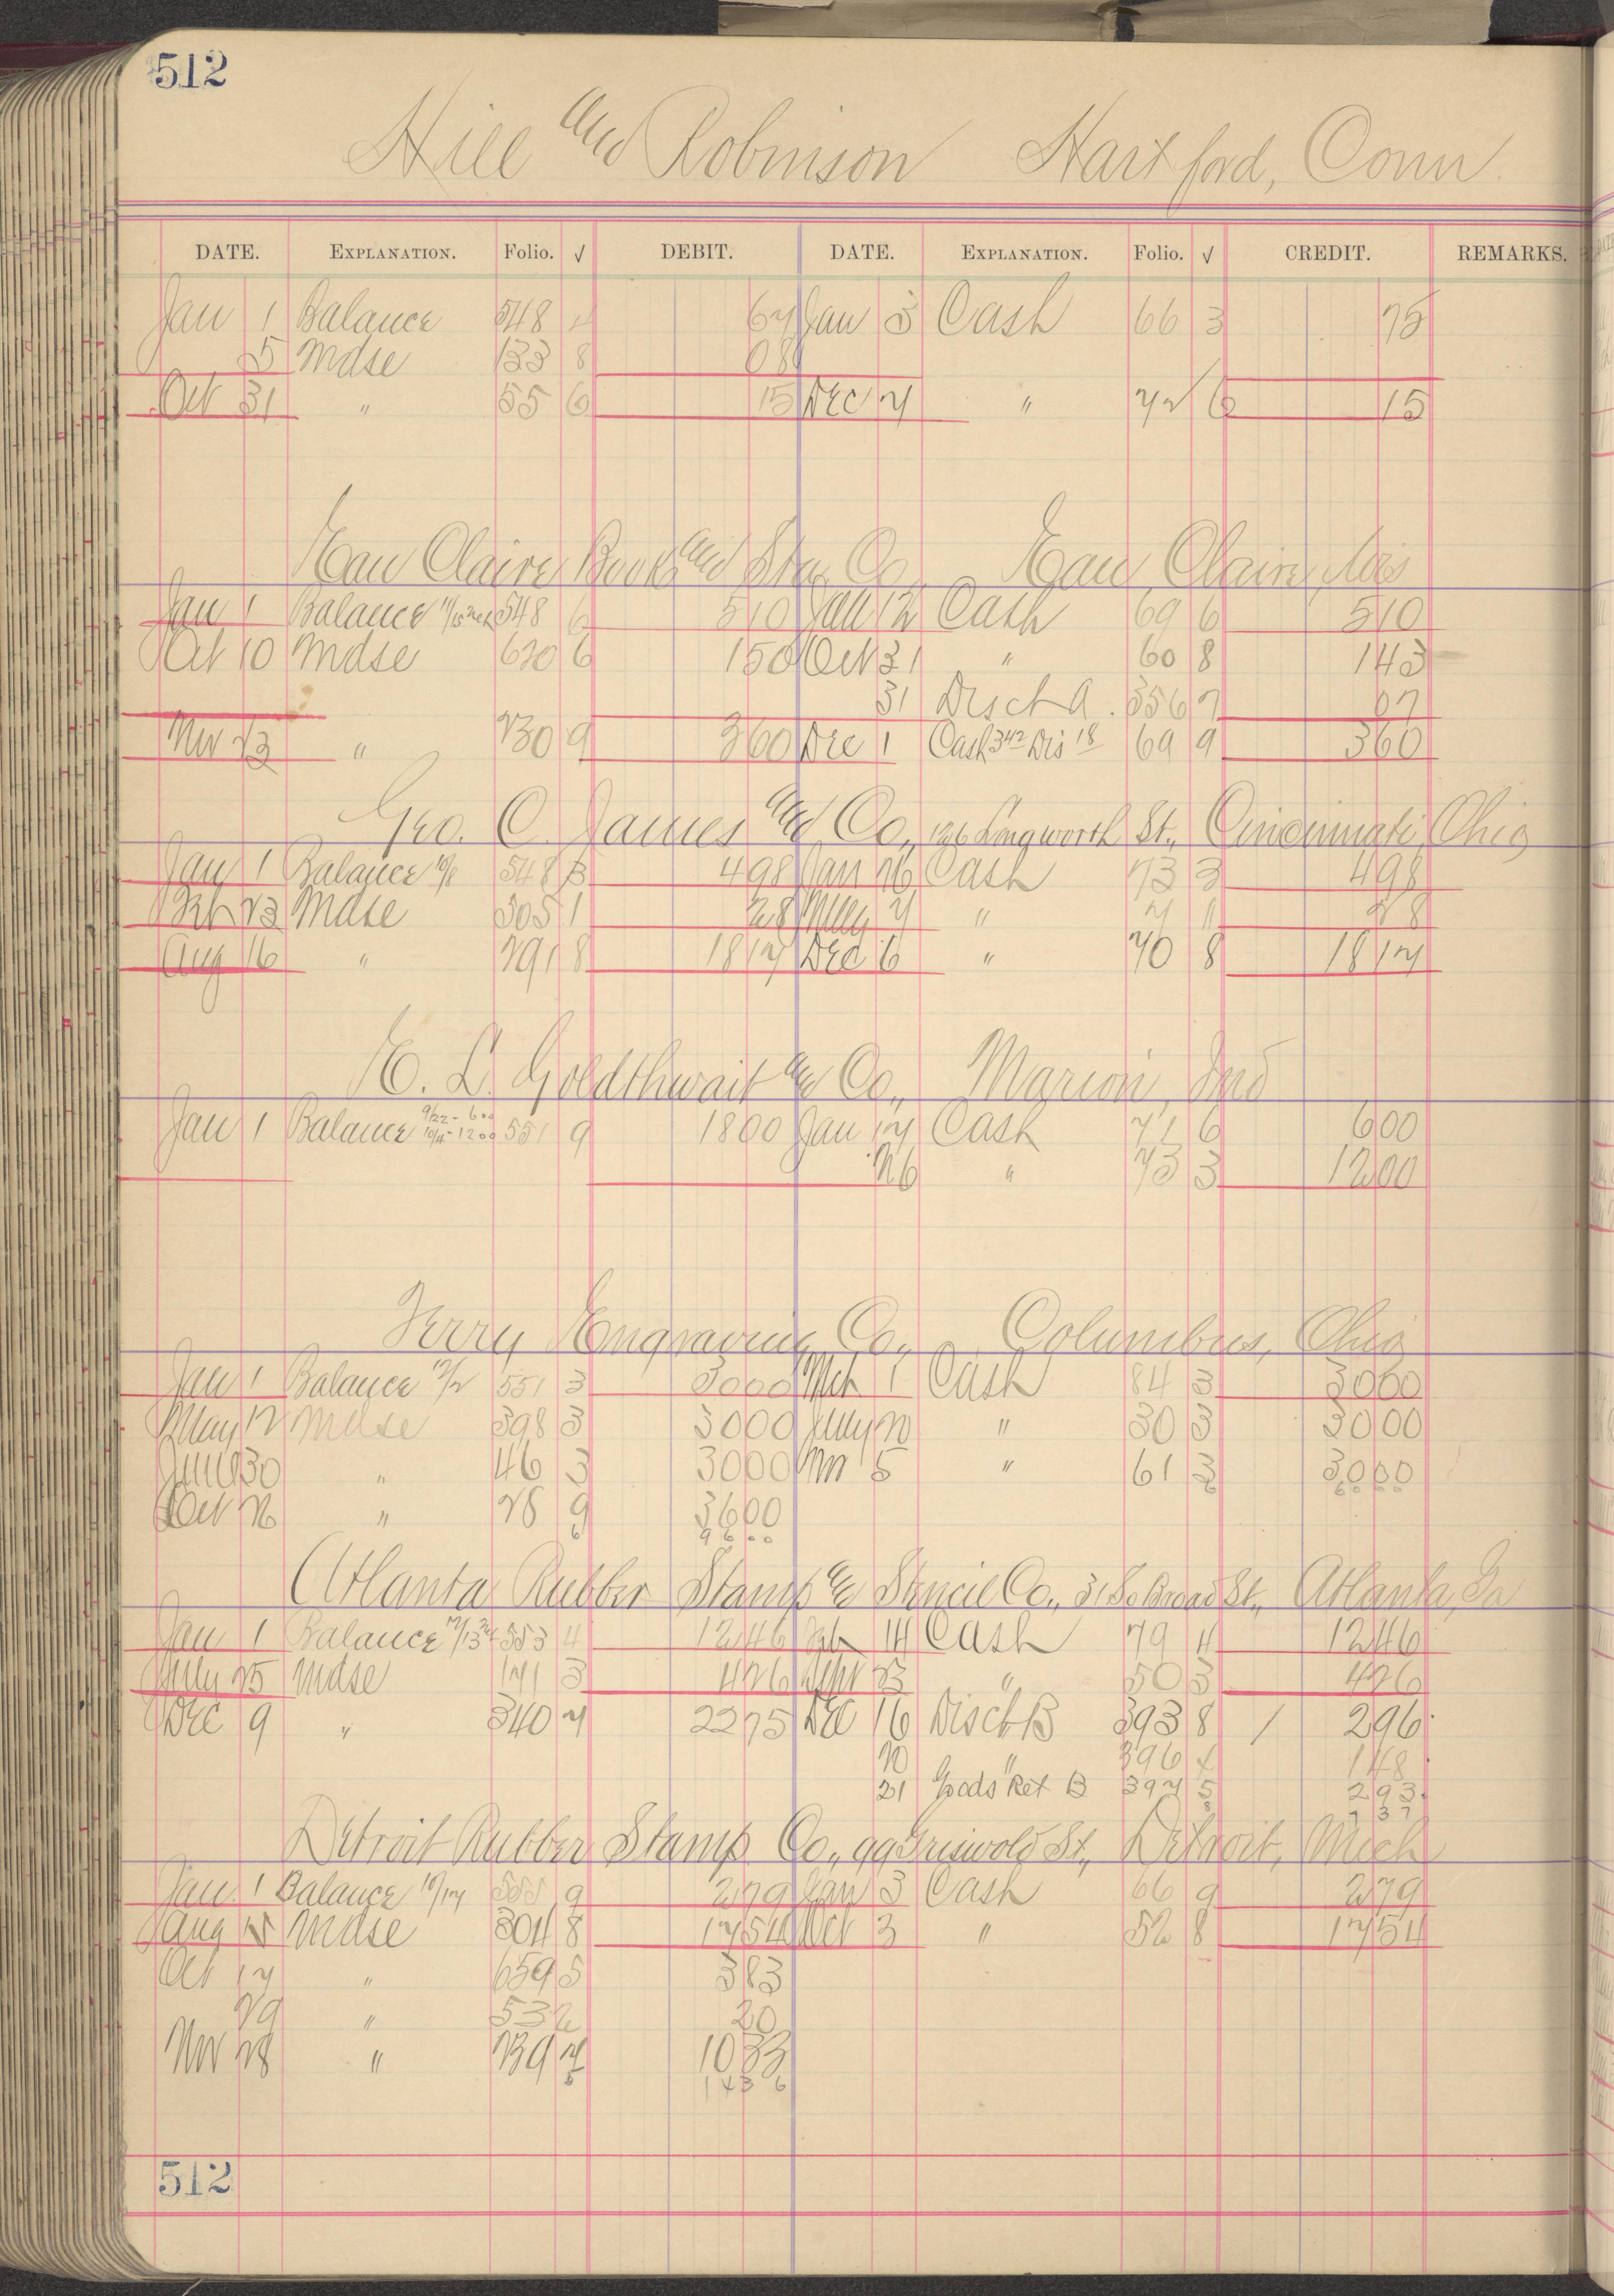 512
Hill and Robinson Hartford, Conn.
DATE. EXPLANATION. Folio. √ DEBIT. DATE. EXPLANATION. Folio. √ CREDIT. REMARKS.
Jan 1 Balance 548 4 67 Jan 3 Cash 66 3 75
5 Mdse 133 8 08
Oct 31 " 55 6 15 Dec 7 " 72 6 15
Eau Claire Book and Sta Co., Eau Claire, Wis
Jan 1 Balance 548 6 510 Jan 12 Cash 69 6 510
Oct 10 Mdse 620 6 150 Oct 31 " 60 8 143
31 Disct A. 356 7 07
Nov 23 " 230 9 360 Dec 1 Cash 342 Dis 18 69 9 360
Geo. C. James and Co., 126 Longworth St., Cincinnati, Ohio
Jan 1 Balance 10/8 548 3 498 Jan 26 Cash 73 3 498
Feb 23 Mdse 305 1 28 May 7 " 7 1 28
Aug 16 " 291 8 1817 Dec 6 " 70 8 1817
E. L. Goldthwait and Co., Marion, Ind
9/22 - 600
Jan 1 Balance 10/4 - 1200 551 9 1800 Jan 17 Cash 71 6 600
26 " 73 3 1200
Terry Engraving Co., Columbus, Ohio
Jan 1 Balance 12/2 551 3 3000 Mch 1 Cash 84 3 3000
May 12 Mdse 398 3 3000 July 20 " 30 3 3000
June 30 " 46 3 3000 Nov 5 " 61 3 3000
6 6000
Oct 26 " 28 9 3600
6 9600
Atlanta Rubber Stamp and Stencil Co., 31 So Broad St., Atlanta, Ga
Jan 1 Balance 12/13 553 4 1246 Feb 14 Cash 79 4 1246
July 25 Mdse 171 3 426 Sept 23 " 50 3 426
Dec 9 " 340 7 2275 Dec 16 Disct B 393 8 / 296
20 " 396 4 148
21 Goods Ret B 397 5 293
8 737
Detroit Rubber Stamp Co., 99 Griswold St., Detroit, Mich
Jan. 1 Balance 10/17 555 9 279 Jan 3 Cash 66 9 279
Aug 15 Mdse 304 8 1754 Oct 3 " 52 8 1754
Oct 17 " 659 5 383
29 " 53 2 20
Nov 28 " 239 7 1033
5 1436
512